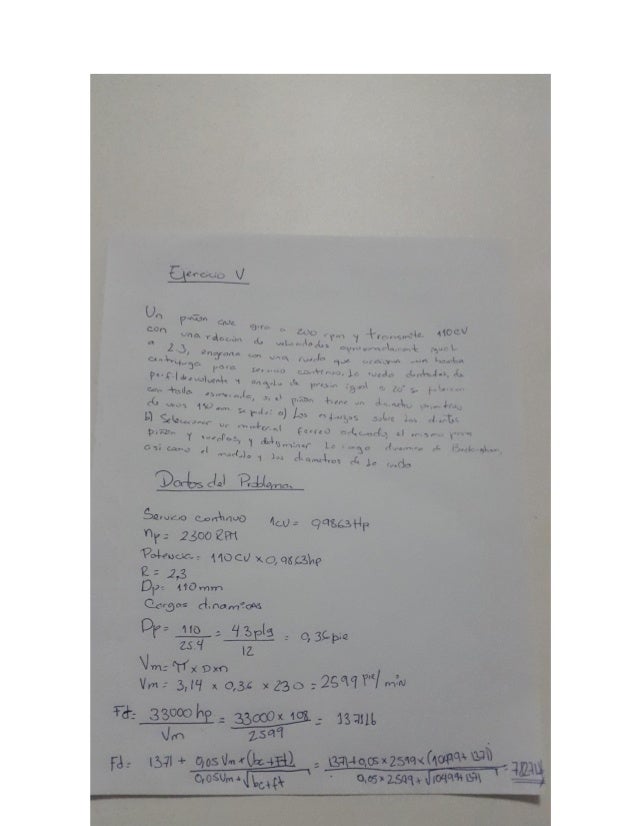 Ejercicio V
Un piñón que gira a 200 rpm y transmite 110 CV
con una relación de velocidades aproximadament igual
a 2.3, engrana con una rueda que acciona una bomba
centrifuga para servicio continuo. La rueda dentadas, de
perfil de evolvente y angulo de presin igual a 20° se fabrican
con talla esmerada, si el piñón tiene un diametro primitivo
de unos 110 mm se pide: a) Los esfuerzos sobre los dientes
b) Seleccionar un material ferreo adecuado, el mismo para
piñon y ruedas, y determinar la carga dinamica de Buckingham,
asi como el modulo y los diametros de la rueda
Datos del Problema
Servicio continuo 1CV = 0,9863Hp
np = 2300 RPM
Potencia = 110 CV x 0,9863hp
R = 2,3
Dp = 110mm
Cargas dinamicas
Dp = 110 / 25.4 = 4 3 plg / 12 = 0,36 pie
Vm = π x D x n
Vm = 3,14 x 0,36 x 230 = 2599 pie/min
Ft = 33000 hp / Vm = 33000 x 108 / 2599 = 1371 lb
Fd = 1371 + 0,05 Vm + (bc + Ft) / 0,05Vm + √bc+ft = 1371 + 0,05 x 2599 x (10499 + 1371) / 0,05 x 2599 + √10499+1371